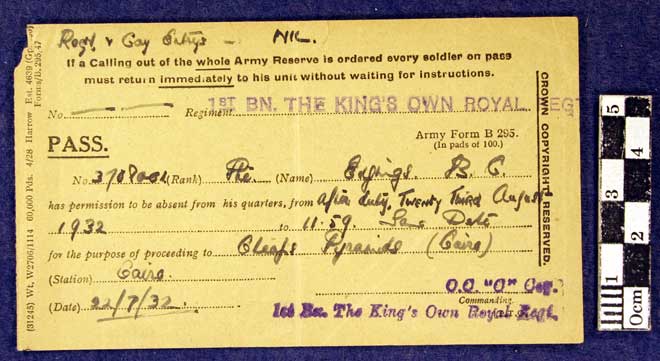 Regtl & Coy Entys — NIL.
If a Calling out of the whole Army Reserve is ordered every soldier on pass
must return immediately to his unit without waiting for instructions.
No. Regiment 1ST BN. THE KING'S OWN ROYAL REGT
PASS.
Army Form B 295.
(In pads of 100.)
No. (Rank) Pte. (Name) B C.
has permission to be absent from his quarters, from after duty, Twenty Third August
1932 to 11.59. Same Date
for the purpose of proceeding to Cheops Pyramids (Cairo)
(Station) Cairo.
O.C. "C" Coy.
Commanding
(Date) 22/8/32.
1st Bn. The King's Own Royal Regt.
CROWN COPYRIGHT RESERVED.
(31245) Wt. W2706/1114 60,000 Pds. 4/28 Harrow Est. 4639
Forms/B. 295/47
0cm 1 2 3 4 5